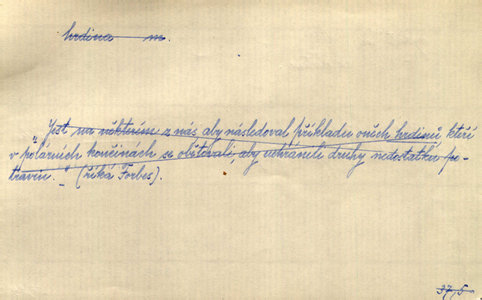 hrdina m.
„Jest na některém z nás, aby následoval příkladu oněch hrdinů, kteří
v polárních končinách se obětovali, aby uchránili druhy nedostatku po-
travin.“ (říká Forbes).
37,5